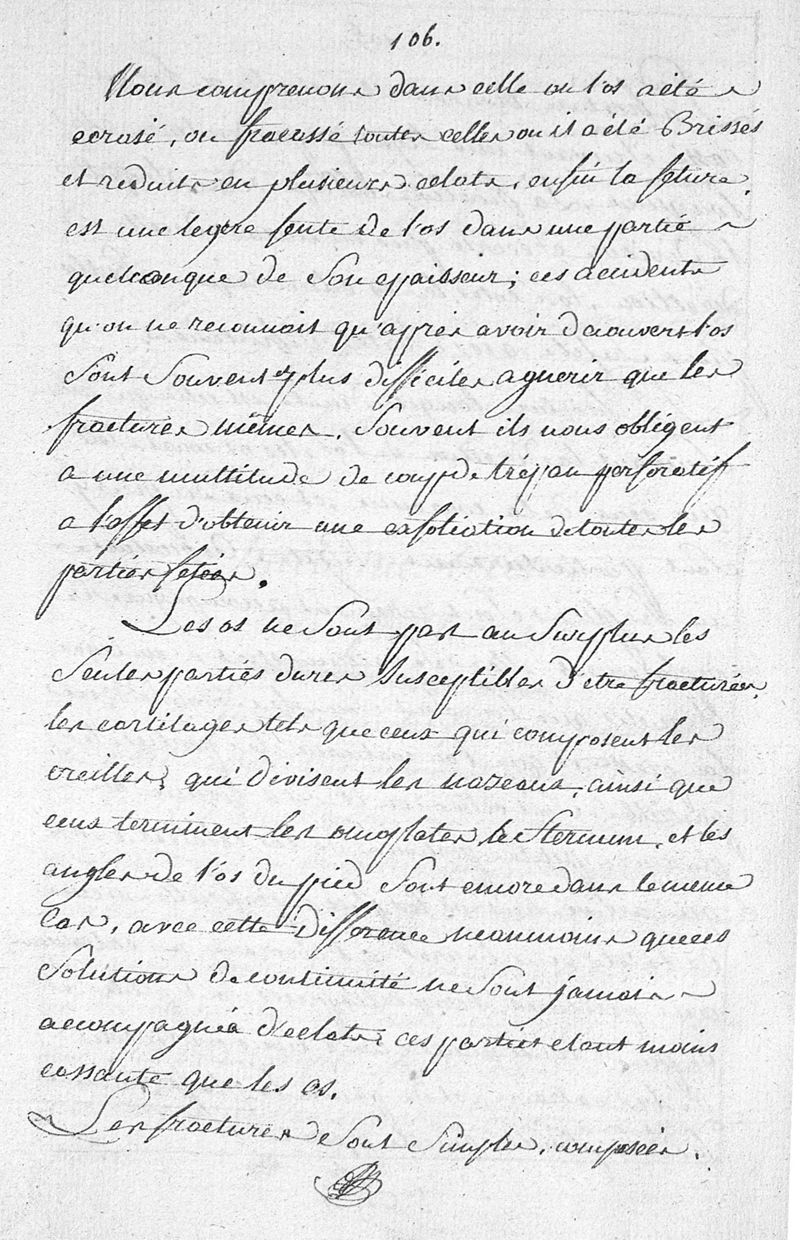 106.
Nous comprenons dans celle ou l'os a été
ecrasé, ou fracassé toutes celles ou il a été Brissés
et reduits en plusieurs eclats, enfin la feture
est une legere fente de l'os dans une partie
quelconque de Son epaisseur; ces accidents
qu'on ne reconnoit qu'aprés avoir decouvert l'os
Sont Souvent plus difficiles a guerir que les
fractures mêmes. Souvent ils nous obligent
a une multitude de coup de trépan perforatif
a l'effet d'obtenir une exfoliation de toutes les
parties fetées.
Les os ne Sont pas au Surplus les
Seules parties dures Susceptibles d'etre fracturées,
les cartilages tels que ceux qui composent les
oreilles, qui divisent les nazeaux, ainsi que
ceux terminent les omoplates le Sternum, et les
angles de l'os du pied Sont encore dans le meme
Cas, avec cette difference neanmoins que ces
Solutions de continuité ne Sont jamais
accompagnées d'eclats, ces parties etant moins
cassante que les os.
Les fractures Sont Simples, composées,